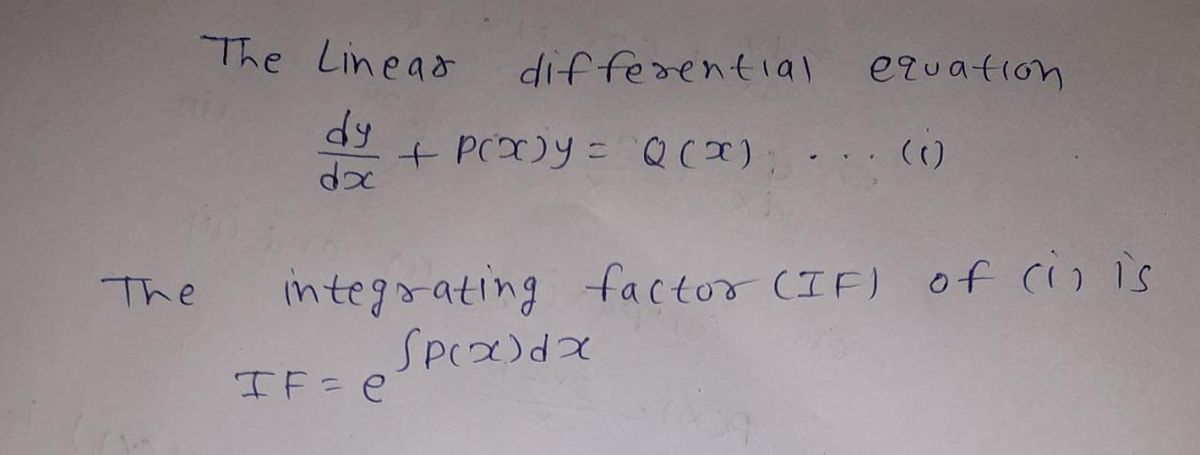 The Linear differential equation
dy/dx + P(x)y = Q(x) .... (i)
The integrating factor (IF) of (i) is
IF = e^∫P(x)dx